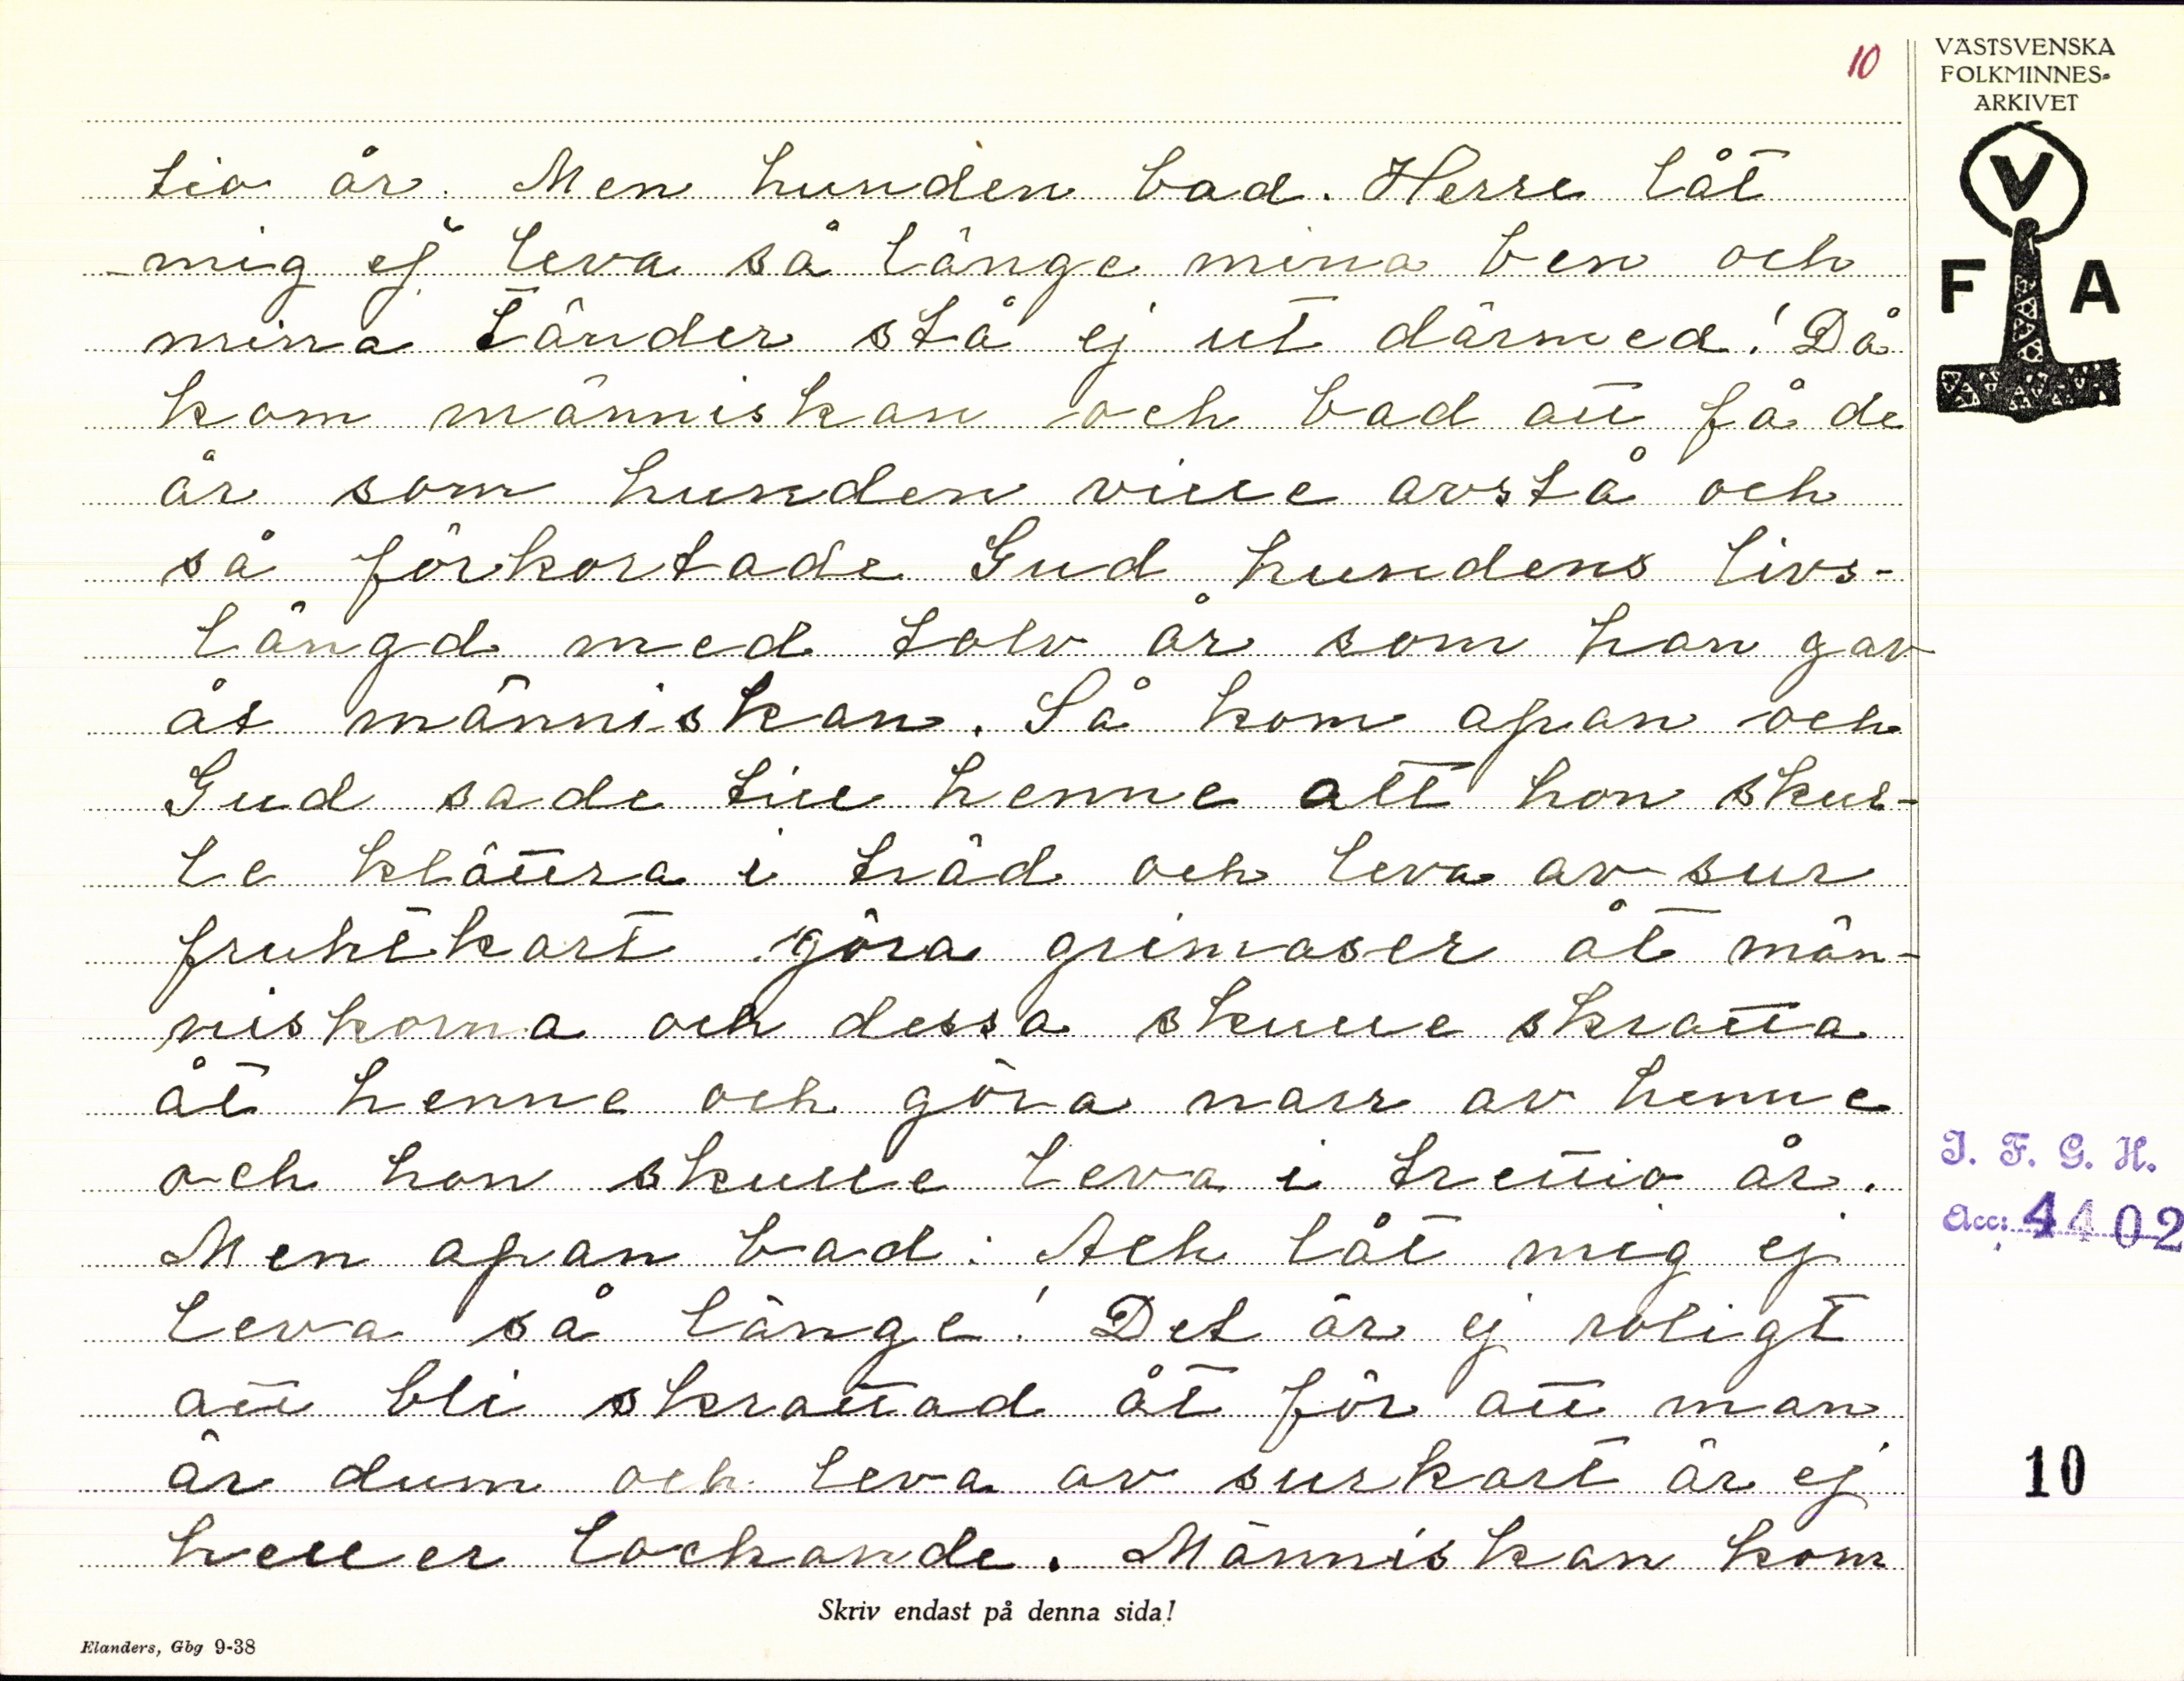 10
VÄSTSVENSKA
FOLKMINNES-
ARKIVET
V
F A
tio år. Men hunden bad. Herre låt
mig ej leva så länge mina ben och
mina tänder stå ej ut därmed! Då
kom människan och bad att få de
år som hunden ville avstå och
så förkortade Gud hundens livs-
längd med tolv år som han gav
åt människan. Så kom apan och
Gud sade till henne att hon skul-
le klättra i träd och leva av sur
fruktkart göra grimaser åt män-
niskorna och dessa skulle skratta
åt henne och göra narr av henne
och hon skulle leva i trettio år.
Men apan bad: Ack låt mig ej
leva så länge! Det är ej roligt
att bli skrattad åt för att man
är dum och leva av surkart är ej
heller lockande. Människan kom
I. F. G. H.
Acc: 4402
10
Skriv endast på denna sida!
Elanders, Gbg 9-38